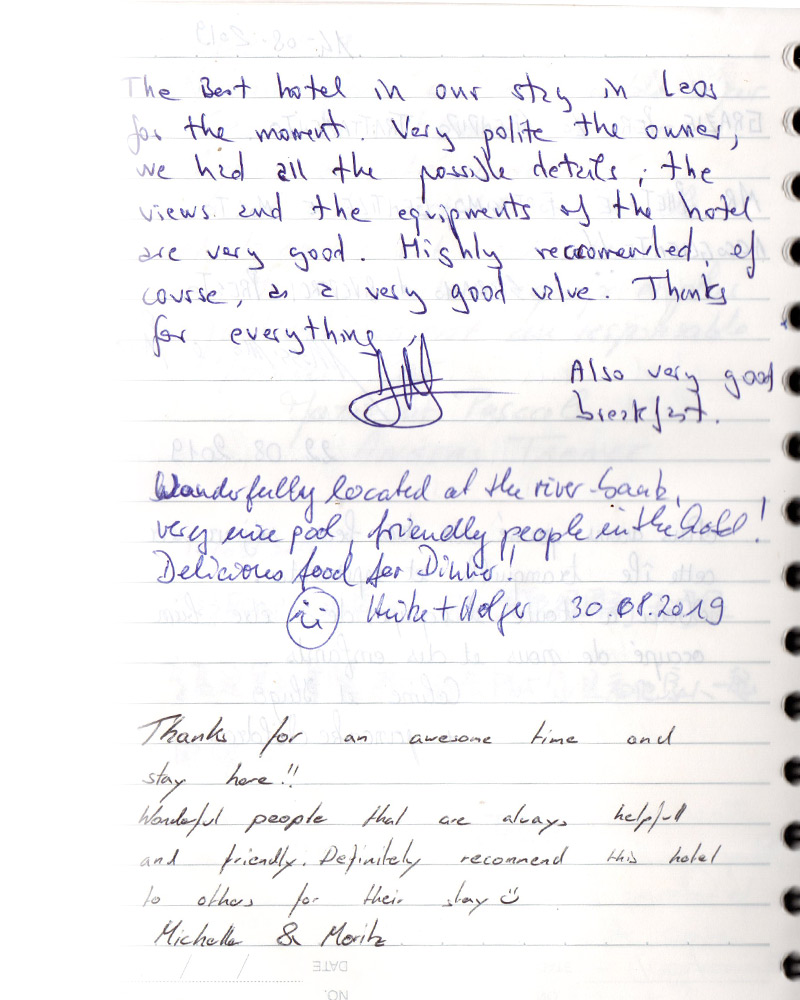 The Best hotel in our stay in Laos
for the moment. Very polite the owner,
we had all the possible details; the
views and the equipments of the hotel
are very good. Highly recommended, of
course, as a very good value. Thanks
for everything
Also very good
breakfast.
Wonderfully located at the river-bank,
very nice pool, friendly people in the hotel!
Delicious food for Dinner!
Heike + Holger 30.08.2019
Thanks for an awesome time and
stay here!!
Wonderful people that are always helpfull
and friendly. Definitely recommend this hotel
to others for their stay
Michelle & Moritz
DATE
NO.